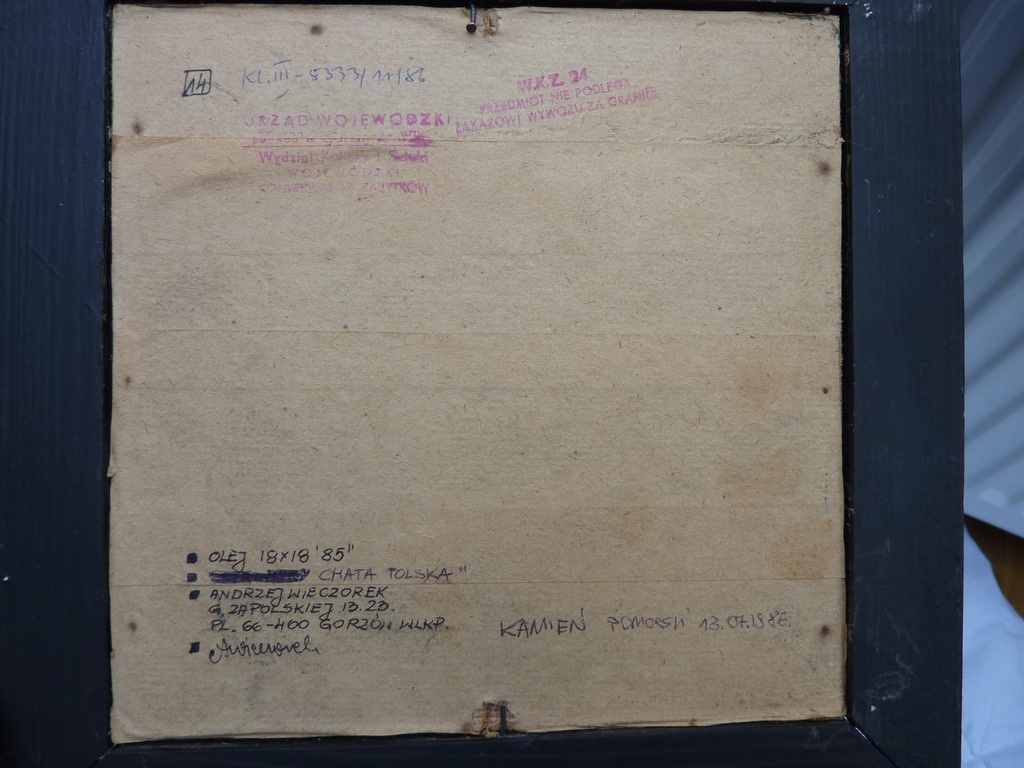 14
KL.III-8333/11/86
W.K.Z. 24
PRZEDMIOT NIE PODLEGA
ZAKAZOWI WYWOZU ZA GRANICĘ
URZĄD WOJEWODZKI
Wydział Kultury i Sztuki
WOJEWÓDZKI
KONSERWATOR ZABYTKÓW
OLEJ 18×18 '85"
CHATA POLSKA"
ANDRZEJ WIECZOREK
G. ZAPOLSKIEJ 13.23.
PL. 66-400 GORZÓW WLKP.
KAMIEŃ POMORSKI 13.07.1986.
AWieczorek